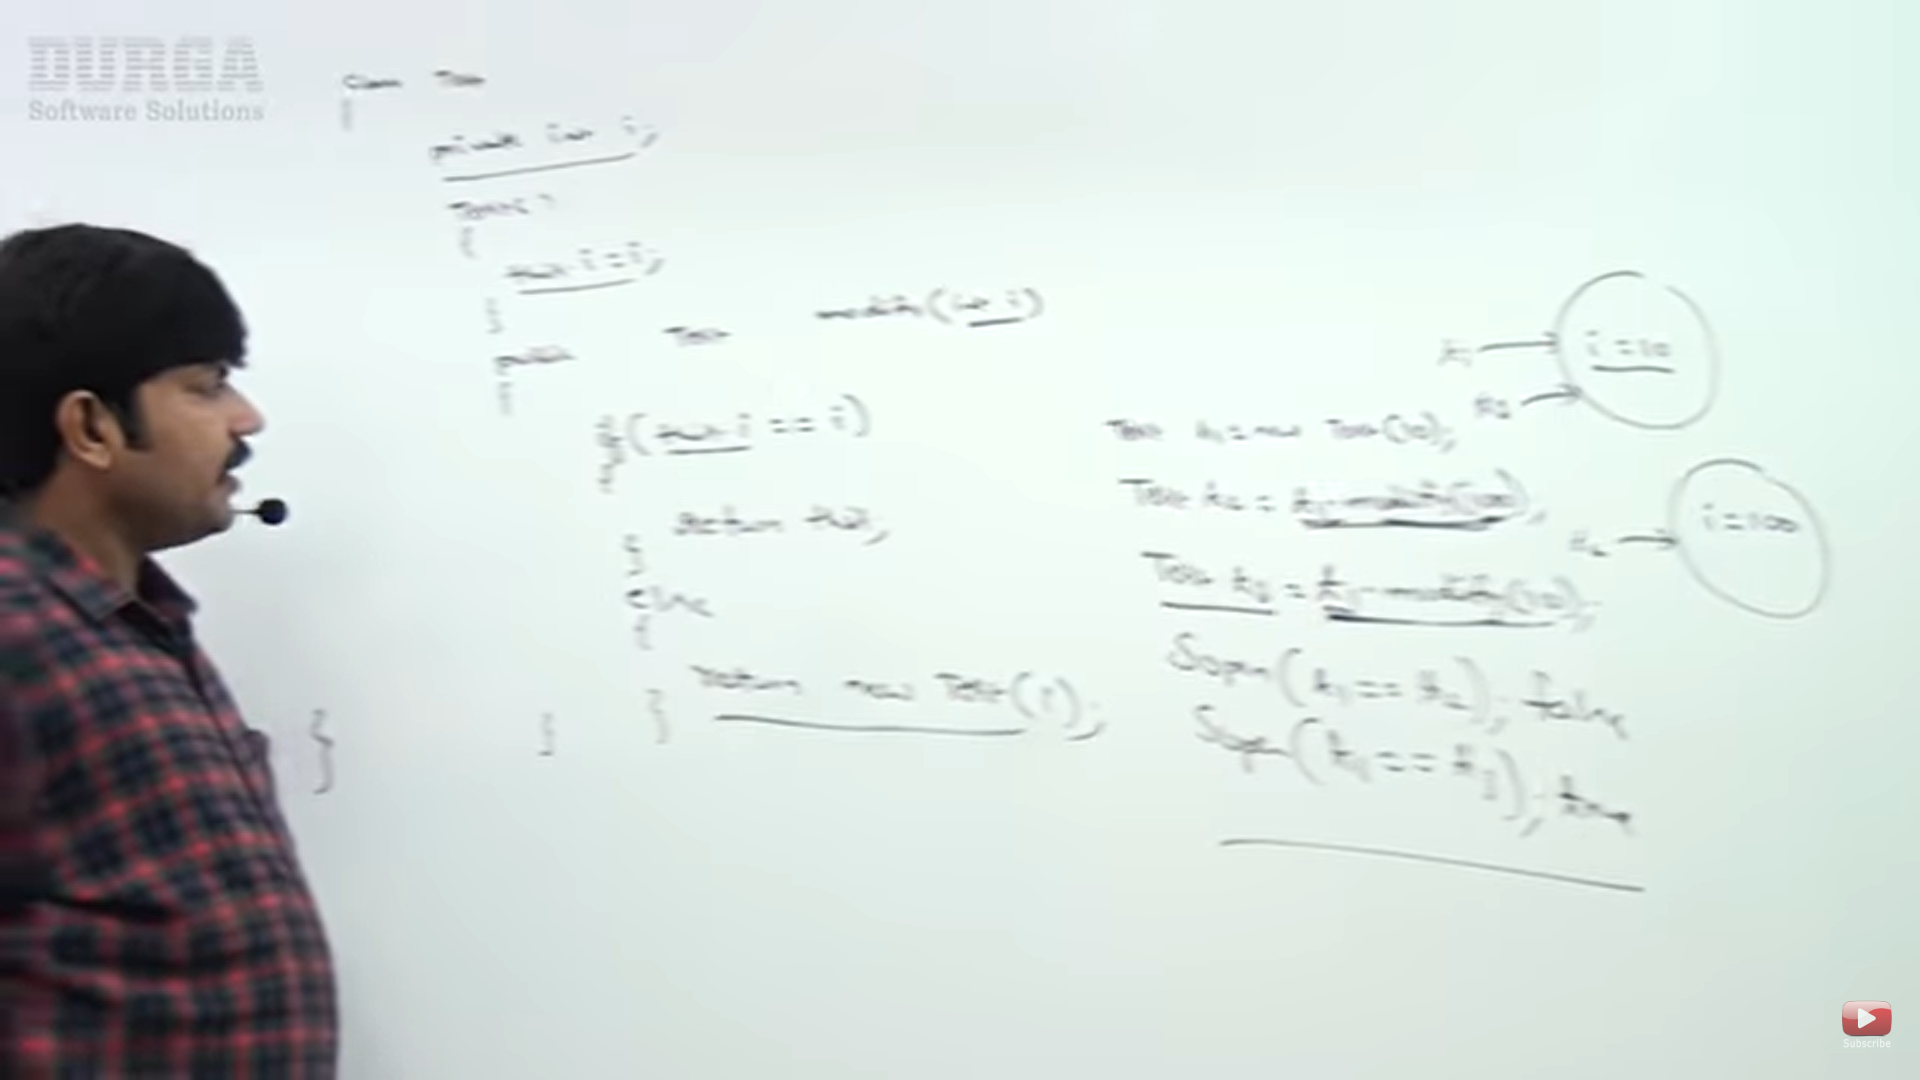 DURGA
Software Solutions
Class Test
{
private int i;
Test( )
{
this.i = i;
}
public Test modify(int i)
{
if(this.i == i)
{
return this;
}
else
{
return new Test(i);
}
}
}
t1 → i = 10
t3 →
Test t1 = new Test(10);
Test t2 = t1.modify(100);
t2 → i = 100
Test t3 = t1.modify(10);
Sopln(t1 == t2); false
Sopln(t1 == t3); true
Subscribe